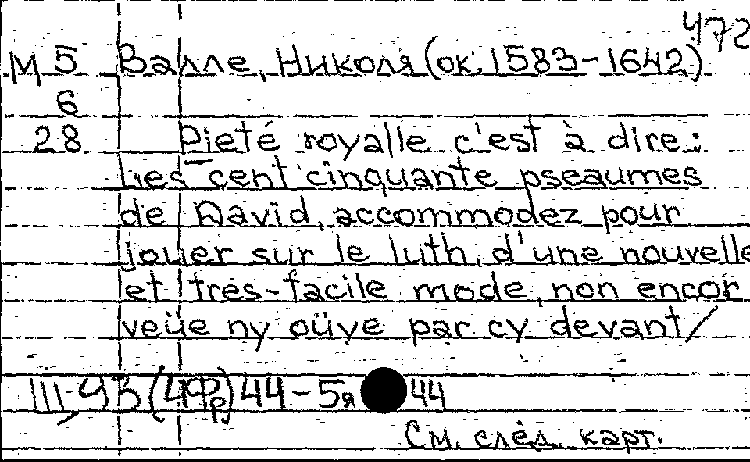 472
М 5 Валле, Николя (ок. 1583-1642)
6
28 Pieté royalle c'est à dire:
Les cent cinquante pseaumes
de David, accommodez pour
jouer sur le luth, d'une nouvelle
et très-facile mode, non encor
veüe ny oüye par cy devant/
III-93 (4Фр) 44-5я 44
См. след. карт.